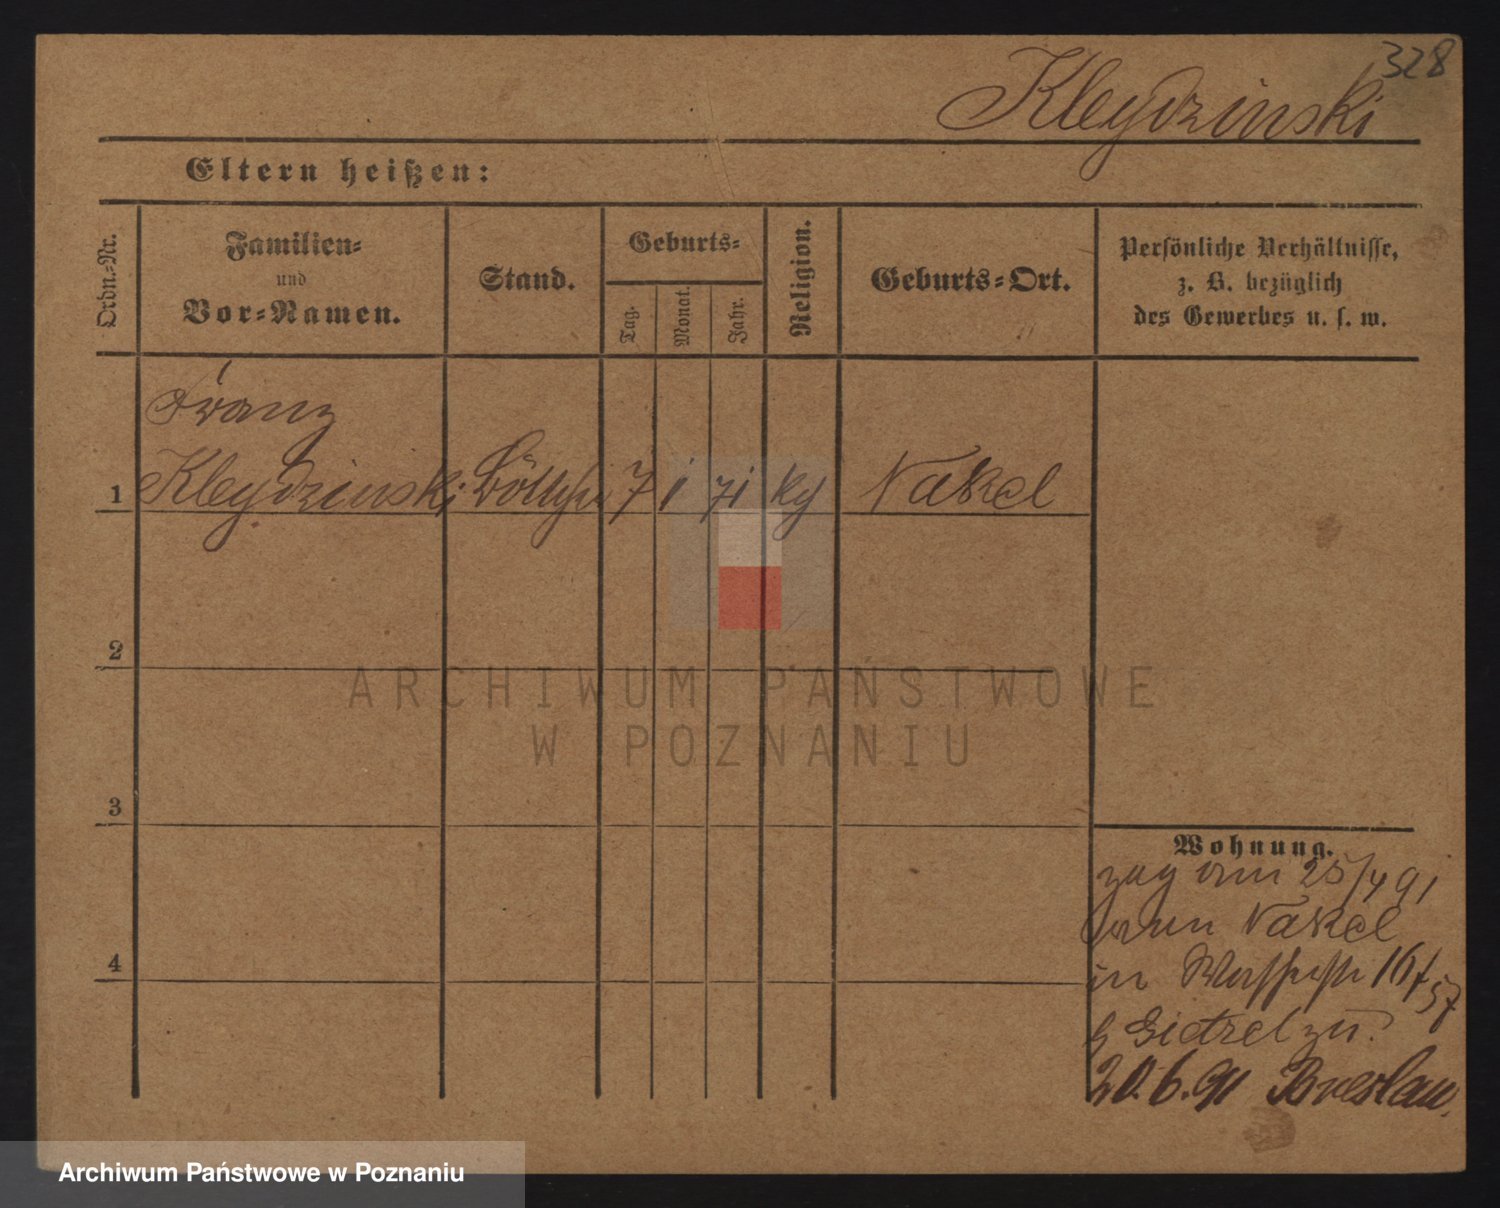 328
Kleydzinski
Eltern heißen:
Ordn.-Nr.
Familien-
und
Vor-Namen.
Stand.
Geburts-
Tag.
Monat.
Jahr.
Religion.
Geburts-Ort.
Persönliche Verhältnisse,
z. B. bezüglich
des Gewerbes u. s. w.
Franz
1 Kleydzinski Böttcher 7 1 71 kg Nakel
2
3
4
Wohnung.
zog am 25/4 91
von Nakel
in 16/57
b zu.
20.6.91 Breslau.
ARCHIWUM PAŃSTWOWE
W POZNANIU
Archiwum Państwowe w Poznaniu